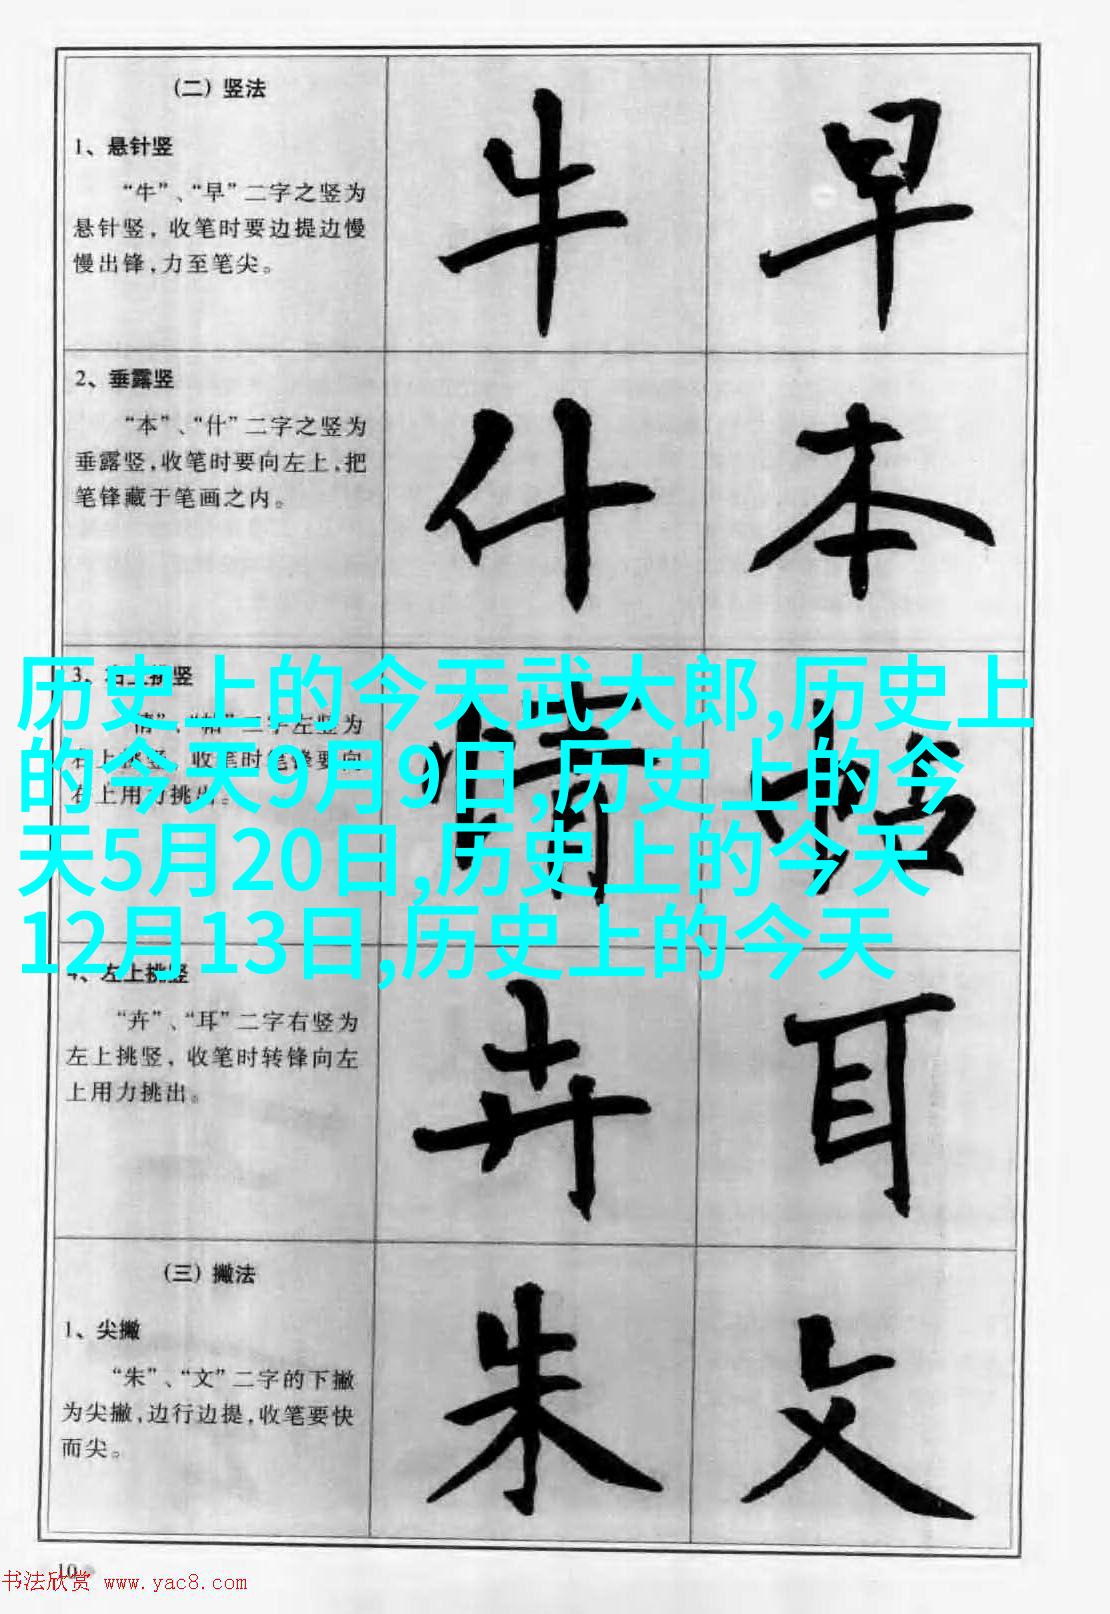 （二）竖法
牛 早
1、悬针竖
“牛”、“早”二字之竖为
悬针竖，收笔时要边提边慢
慢出锋，力至笔尖。
2、垂露竖
什 本
“本”、“什”二字之竖为
垂露竖，收笔时要向左上，把
笔锋藏于笔画之内。
历史上的今天武大郎,历史上
的今天9月9日,历史上的今
天5月20日,历史上的今天
12月13日,历史上的今天
3、右上挑竖
情 帖
“情”、“帖”二字左竖为
右上挑竖，收笔时笔锋要向
右上用力挑出。
4、左上挑竖
卉 耳
“卉”、“耳”二字右竖为
左上挑竖，收笔时转锋向左
上用力挑出。
（三）撇法
1、尖撇
朱 文
“朱”、“文”二字的下撇
为尖撇，边行边提，收笔要快
而尖。
10
书法欣赏 www.yac8.com